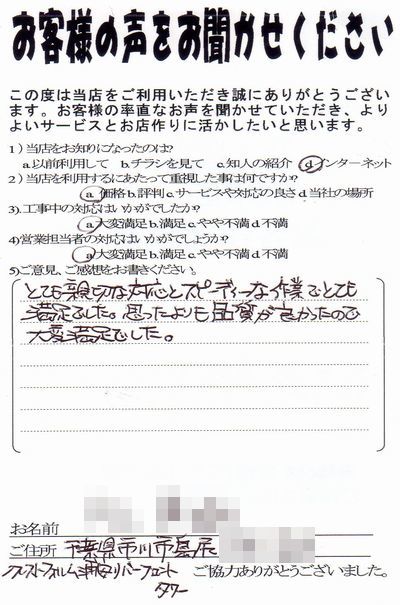 お客様の声をお聞かせください
この度は当店をご利用いただき誠にありがとうござい
ます。お客様の率直なお声を聞かせていただき、より
よいサービスとお店作りに活かしたいと思います。
1)当店をお知りになったのは?
a.以前利用して b.チラシを見て c.知人の紹介 d.インターネット
2)当店を利用するにあたって重視した事は何ですか?
a.価格 b.評判 c.サービスや対応の良さ d.当社の場所
3).工事中の対応はいかがでしたか?
a.大変満足 b.満足 c.やや不満 d.不満
4)営業担当者の対応はいかがでしょうか?
a.大変満足 b.満足 c.やや不満 d.不満
5)ご意見、ご感想をお書きください。
とても親切な対応とスピーディーな作業でとても
満足でした。思ったよりも品質が良かったので
大変満足でした。
お名前
ご住所 千葉県市川市島尻
クレストフォルム浦安リバーフロント
タワー
ご協力ありがとうございました。